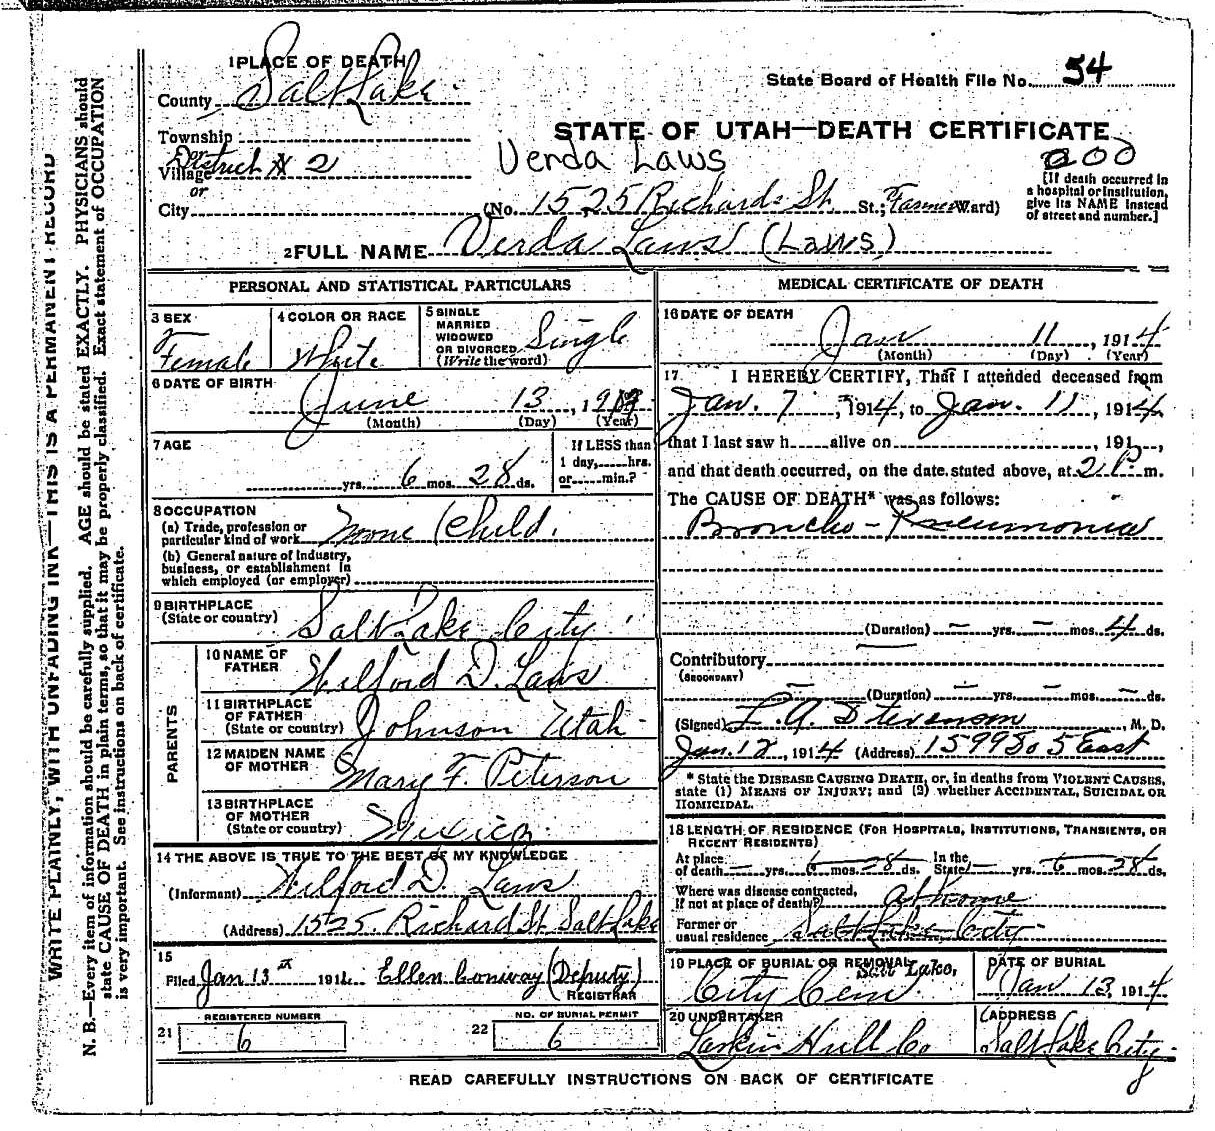 WRITE PLAINLY, WITH UNFADING INK—THIS IS A PERMANENT RECORD
N. B.—Every item of information should be carefully supplied. AGE should be stated EXACTLY. PHYSICIANS should
state CAUSE OF DEATH in plain terms, so that it may be properly classified. Exact statement of OCCUPATION
is very important. See instructions on back of certificate.
1 PLACE OF DEATH
County Salt Lake
State Board of Health File No. 54
Township
STATE OF UTAH—DEATH CERTIFICATE
Village District 2
Verda Laws
or
City
(No. 1525 Richards St. St.; Farmer Ward)
[If death occurred in
a hospital or institution,
give its NAME instead
of street and number.]
2 FULL NAME Verda Laws (Laws)
PERSONAL AND STATISTICAL PARTICULARS
3 SEX
Female
4 COLOR OR RACE
White
5 SINGLE
MARRIED
WIDOWED
OR DIVORCED
(Write the word)
Single
6 DATE OF BIRTH
June 13, 1913
(Month) (Day) (Year)
7 AGE
yrs. 6 mos. 28 ds.
If LESS than
1 day, hrs.
or min.?
8 OCCUPATION
(a) Trade, profession or
particular kind of work None (Child.
(b) General nature of Industry,
business, or establishment in
which employed (or employer)
9 BIRTHPLACE
(State or country) Salt Lake City
PARENTS
10 NAME OF
FATHER Wilford D. Laws
11 BIRTHPLACE
OF FATHER
(State or country) Johnson Utah
12 MAIDEN NAME
OF MOTHER Mary F. Peterson
13 BIRTHPLACE
OF MOTHER
(State or country) Mexico
14 THE ABOVE IS TRUE TO THE BEST OF MY KNOWLEDGE
(Informant) Wilford D. Laws
(Address) 1525 Richard St Salt Lake
15
Filed Jan 13th 1914 Ellen Conway (Deputy)
REGISTRAR
21 REGISTERED NUMBER
6
22 NO. OF BURIAL PERMIT
6
MEDICAL CERTIFICATE OF DEATH
16 DATE OF DEATH
Jan 11, 1914
(Month) (Day) (Year)
17 I HEREBY CERTIFY, That I attended deceased from
Jan. 7, 1914, to Jan. 11, 1914
that I last saw h alive on , 191 ,
and that death occurred, on the date stated above, at 2 P. m.
The CAUSE OF DEATH* was as follows:
Broncho-Pneumonia
(Duration) — yrs. — mos. 4 ds.
Contributory
(SECONDARY)
(Duration) — yrs. — mos. — ds.
(Signed) L. A. Stevenson M. D.
Jan. 12, 1914 (Address) 1599 So 5 East
* State the DISEASE CAUSING DEATH, or, in deaths from VIOLENT CAUSES,
state (1) MEANS OF INJURY; and (2) whether ACCIDENTAL, SUICIDAL OR
HOMICIDAL.
18 LENGTH OF RESIDENCE (FOR HOSPITALS, INSTITUTIONS, TRANSIENTS, OR
RECENT RESIDENTS)
At place
of death — yrs. 6 mos. 28 ds. In the
State — yrs. 6 mos. 28 ds.
Where was disease contracted,
if not at place of death? at home
Former or
usual residence Salt Lake City
19 PLACE OF BURIAL OR REMOVAL
Salt Lake,
City Cem
DATE OF BURIAL
Jan 13, 1914
20 UNDERTAKER
Larkin Hull Co
ADDRESS
Salt Lake City
READ CAREFULLY INSTRUCTIONS ON BACK OF CERTIFICATE